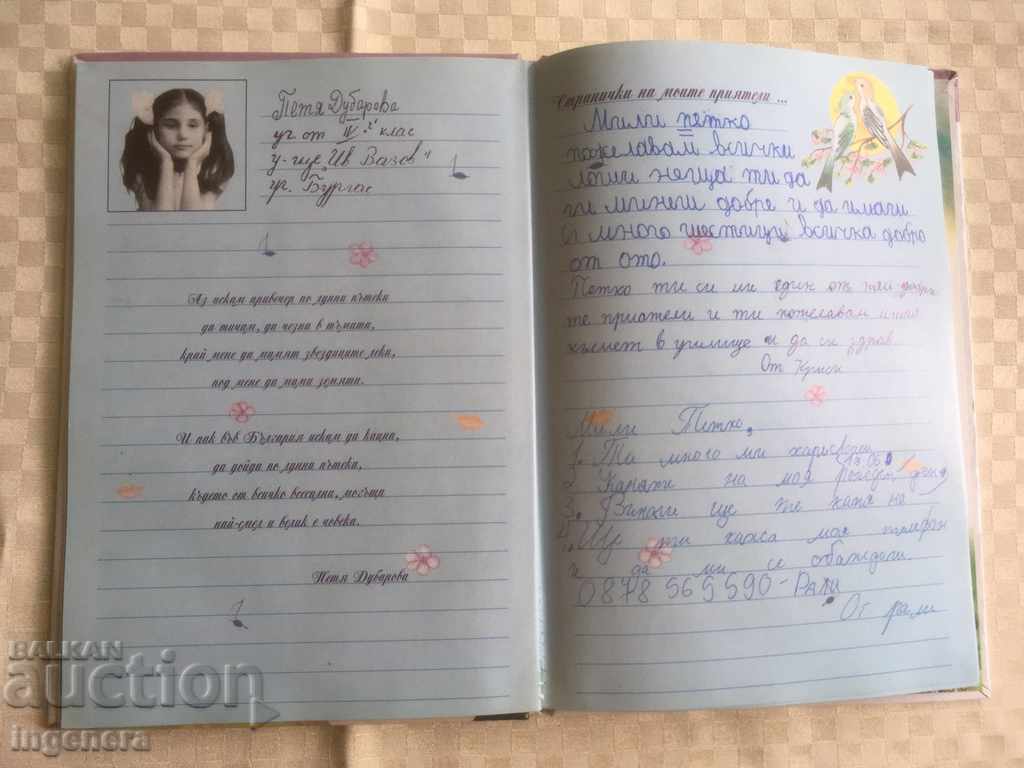 Петя Дубарова
уч. от IV "г" клас
у-ще "Ив. Вазов"
гр. Бургас
Аз искам привечер по лунни пътеки
да тичам, да чезна в тъмата,
край мене да мамят звездиците леки,
под мене да мами земята.
И пак във България искам да кацна,
да дойда по лунна пътека,
където от всичко вселенно, могъщо
най-смел и велик е човека.
Петя Дубарова
Странички на моите приятели ...
Мили петко
пожелавам всички
лоши неща ти да
ги минеш добре и да имаш
много шестици всичко добро
от ото.
Петко ти си ми един от най добри
те приятели и ти пожелавам
късмет в училище и да си здрав
От Крисп
Мили Петко,
1. Ти много ми харесваш
2. Каняти на моя рожден ден
3. Винаги ще
4. Ще ти кажа моя телефон
и да ми се обаждаш.
0878 565 590 - Рали
От рали
BALKAN
auction
ingenera